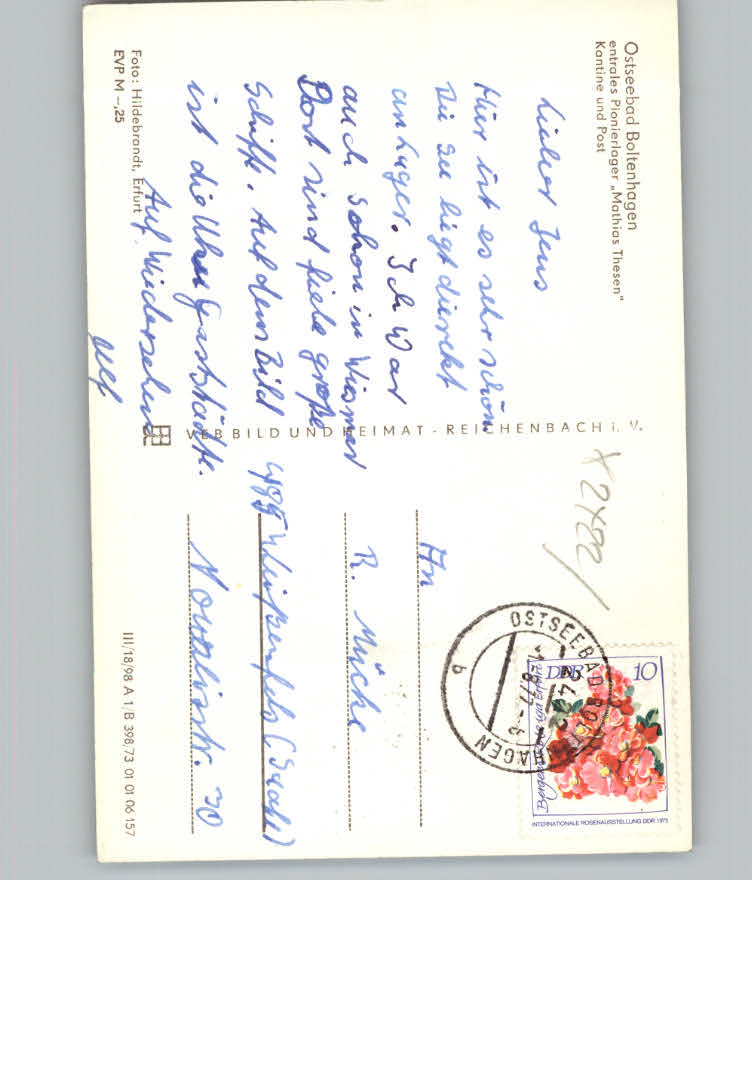 Ostseebad Boltenhagen
entrales Pionierlager „Mathias Thesen"
Kantine und Post
Lieber Jens
Hier ist es sehr schön
Die See liegt direckt
am Lager. Ich war
auch schon in Wismar
Dort sind fiele große
Schiffe. Auf dem Bild
ist die Gaststädte.
Auf Wiedersehen
Ulf
Foto: Hildebrandt, Erfurt
EVP M –,25
VEB BILD UND HEIMAT - REICHENBACH i. V.
An
R. Mücke
485 Weißenfels (Saale)
Novalisstr. 30
III/18/98 A 1/B 398,73 01 01 06 157
X2422/
OSTSEEBAD BOLTENHAGEN
b
DDR 10
INTERNATIONALE ROSENAUSSTELLUNG DDR 1972